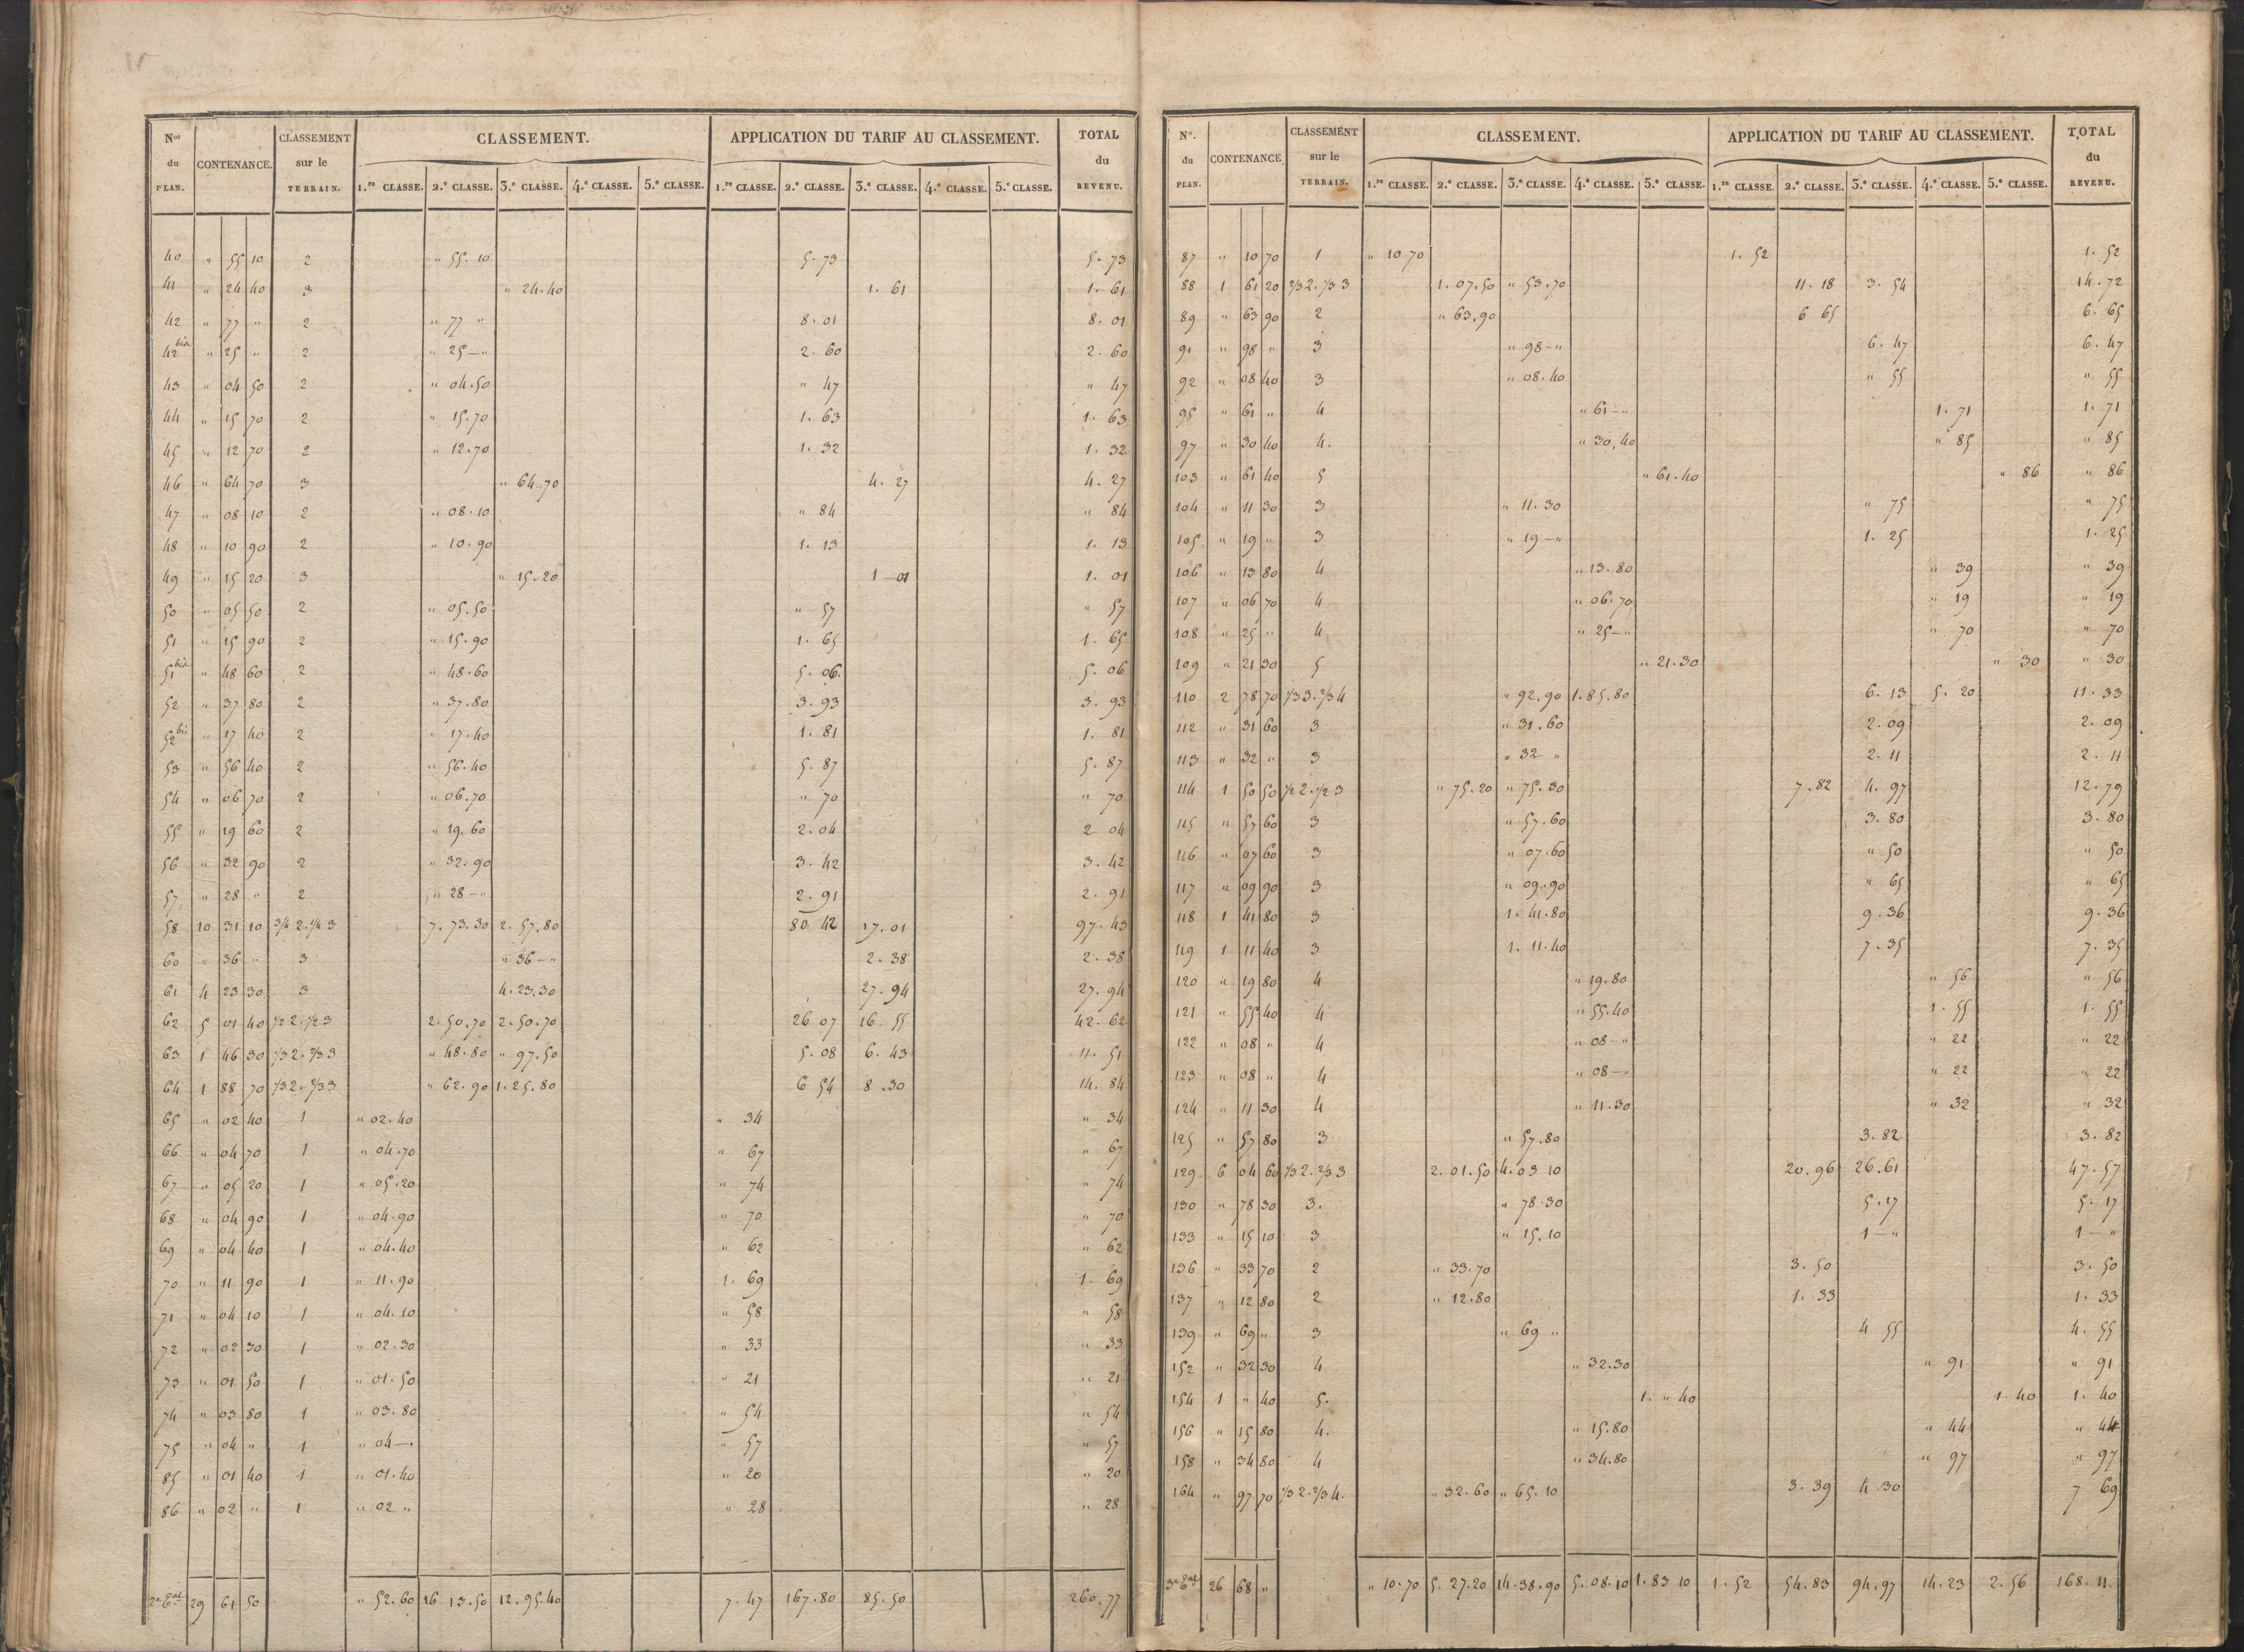 Nos du PLAN. CONTENANCE. CLASSEMENT sur le TERRAIN. CLASSEMENT. APPLICATION DU TARIF AU CLASSEMENT. TOTAL du REVENU.
1.re CLASSE. 2.e CLASSE. 3.e CLASSE. 4.e CLASSE. 5.e CLASSE. 1.re CLASSE. 2.e CLASSE. 3.e CLASSE. 4.e CLASSE. 5.e CLASSE.
40 " 55 10 2 " 55. 10 5. 73 5. 73
41 " 24 40 3 " 24. 40 1. 61 1. 61
42 " 77 " 2 " 77 " 8. 01 8. 01
42 bis " 25 " 2 " 25 — " 2. 60 2. 60
43 " 04 50 2 " 04. 50 " 47 " 47
44 " 15 70 2 " 15. 70 1. 63 1. 63
45 " 12 70 2 " 12. 70 1. 32 1. 32
46 " 64 70 3 " 64. 70 4. 27 4. 27
47 " 08 10 2 " 08. 10 " 84 " 84
48 " 10 90 2 " 10. 90 1. 13 1. 13
49 " 15 20 3 " 15. 20 1 — 01 1. 01
50 " 05 50 2 " 05. 50 " 57 " 57
51 " 15 90 2 " 15. 90 1. 65 1. 65
51 bis " 48 60 2 " 48. 60 5. 06 5. 06
52 " 37 80 2 " 37. 80 3. 93 3. 93
52 bis " 17 40 2 " 17. 40 1. 81 1. 81
53 " 56 40 2 " 56. 40 5. 87 5. 87
54 " 06 70 2 " 06. 70 " 70 " 70
55 " 19 60 2 " 19. 60 2. 04 2 04
56 " 32 90 2 " 32. 90 3. 42 3. 42
57 " 28 " 2 " 28 — " 2. 91 2. 91
58 10 31 10 3/4 2. 1/4 3 7. 73. 30 2. 57. 80 80 42 17. 01 97. 43
60 " 36 " 3 " 36 — " 2. 38 2. 38
61 4 23 30 3 4. 23. 30 27. 94 27. 94
62 5 01 40 1/2 2. 1/2 3 2. 50. 70 2. 50. 70 26 07 16. 55 42. 62
63 1 46 30 1/3 2. 2/3 3 " 48. 80 " 97. 50 5. 08 6. 43 11. 51
64 1 88 70 1/3 2. 2/3 3 " 62. 90 1. 25. 80 6 54 8. 30 14. 84
65 " 02 40 1 " 02. 40 " 34 " 34
66 " 04 70 1 " 04. 70 " 67 " 67
67 " 05 20 1 " 05. 20 " 74 " 74
68 " 04 90 1 " 04. 90 " 70 " 70
69 " 04 40 1 " 04. 40 " 62 " 62
70 " 11 90 1 " 11. 90 1. 69 1. 69
71 " 04 10 1 " 04. 10 " 58 " 58
72 " 02 30 1 " 02. 30 " 33 " 33
73 " 01 50 1 " 01. 50 " 21 " 21
74 " 03 80 1 " 03. 80 " 54 " 54
75 " 04 " 1 " 04 — " " 57 " 57
85 " 01 40 1 " 01. 40 " 20 " 20
86 " 02 " 1 " 02 " " 28 " 28
29 61 50 " 52. 60 16 13. 50 12. 95. 40 7. 47 167. 80 85. 50 260. 77
No. du PLAN. CONTENANCE CLASSEMENT sur le TERRAIN. CLASSEMENT. APPLICATION DU TARIF AU CLASSEMENT. TOTAL du REVENU.
1.re CLASSE. 2.e CLASSE. 3.e CLASSE. 4.e CLASSE. 5.e CLASSE. 1.re CLASSE. 2.e CLASSE. 3.e CLASSE. 4.e CLASSE. 5.e CLASSE.
87 " 10 70 1 " 10 70 1. 52 1. 52
88 1 61 20 2/3 2. 1/3 3 1. 07. 50 " 53. 70 11. 18 3. 54 14. 72
89 " 63 90 2 " 63. 90 6 65 6. 65
91 " 98 " 3 " 98 — " 6. 47 6. 47
92 " 08 40 3 " 08. 40 " 55 " 55
95 " 61 " 4 " 61 — " 1. 71 1. 71
97 " 30 40 4. " 30. 40 " 85 " 85
103 " 61 40 5 " 61. 40 " 86 " 86
104 " 11 30 3 " 11. 30 " 75 " 75
105 " 19 " 3 " 19 — " 1. 25 1. 25
106 " 13 80 4 " 13. 80 " 39 " 39
107 " 06 70 4 " 06. 70 " 19 " 19
108 " 25 " 4 " 25 — " " 70 " 70
109 " 21 30 5 " 21. 30 " 30 " 30
110 2 78 70 1/3 3. 2/3 4 " 92. 90 1. 85. 80 6. 13 5. 20 11. 33
112 " 31 60 3 " 31. 60 2. 09 2. 09
113 " 32 " 3 " 32 " 2. 11 2. 11
114 1 50 50 1/2 2. 1/2 3 " 75. 20 " 75. 30 7. 82 4. 97 12. 79
115 " 57 60 3 " 57. 60 3. 80 3. 80
116 " 07 60 3 " 07. 60 " 50 " 50
117 " 09 90 3 " 09. 90 " 65 " 65
118 1 41 80 3 1. 41. 80 9. 36 9. 36
119 1 11 40 3 1. 11. 40 7. 35 7. 35
120 " 19 80 4 " 19. 80 " 56 " 56
121 " 55 40 4 " 55. 40 1. 55 1. 55
122 " 08 " 4 " 08 — " " 22 " 22
123 " 08 " 4 " 08 — " " 22 " 22
124 " 11 30 4 " 11. 30 " 32 " 32
125 " 57 80 3 " 57. 80 3. 82 3. 82
129 6 04 60 1/3 2. 2/3 3 2. 01. 50 4. 03 10 20. 96 26. 61 47. 57
130 " 78 30 3. " 78. 30 5. 17 5. 17
133 " 15 10 3 " 15. 10 1 — " 1 — "
136 " 33 70 2 " 33. 70 3. 50 3. 50
137 " 12 80 2 " 12. 80 1. 33 1. 33
139 " 69 " 3 " 69 " 4 55 4. 55
152 " 32 30 4 " 32. 30 " 91 " 91
154 1 " 40 5. 1. " 40 1. 40 1. 40
156 " 15 80 4. " 15. 80 " 44 " 44
158 " 34 80 4 " 34. 80 " 97 " 97
164 " 97 70 1/3 2. 2/3 4. " 32. 60 " 65. 10 3. 39 4. 30 7 69
26 68 " " 10. 70 5. 27. 20 14. 38. 90 5. 08. 10 1. 83 10 1. 52 54. 83 94. 97 14. 23 2. 56 168. 11.